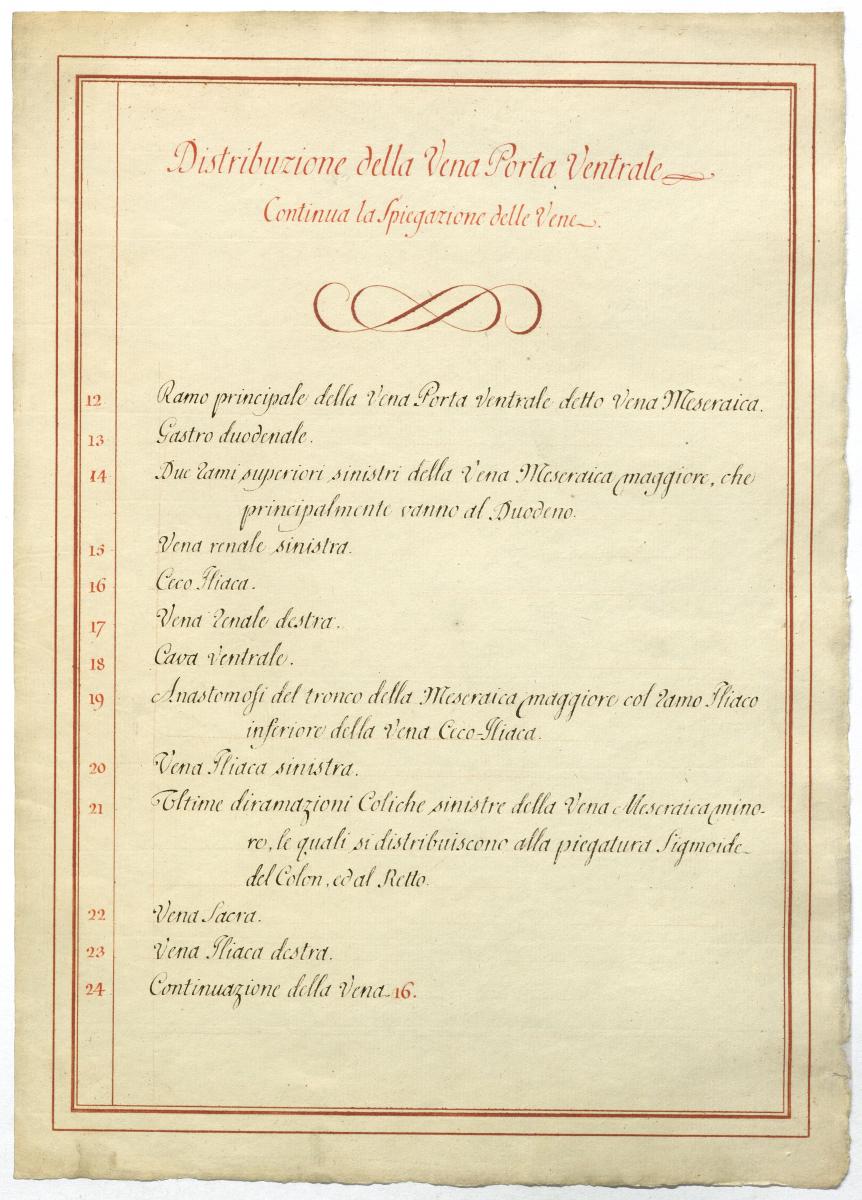 Distribuzione della Vena Porta Ventrale
Continua la Spiegazione delle Vene.
12 Ramo principale della Vena Porta Ventrale detto Vena Meseraica.
13 Gastro duodenale.
14 Due rami superiori sinistri della Vena Meseraica maggiore, che
principalmente vanno al Duodeno.
15 Vena renale sinistra.
16 Ceco Iliaca.
17 Vena renale destra.
18 Cava Ventrale.
19 Anastomosi del tronco della Meseraica maggiore col ramo Iliaco
inferiore della Vena Ceco-Iliaca.
20 Vena Iliaca sinistra.
21 Ultime diramazioni Coliche sinistre della Vena Meseraica mino-
re, le quali si distribuiscono alla piegatura Sigmoide
del Colon, ed al Retto.
22 Vena Sacra.
23 Vena Iliaca destra.
24 Continuazione della Vena 16.